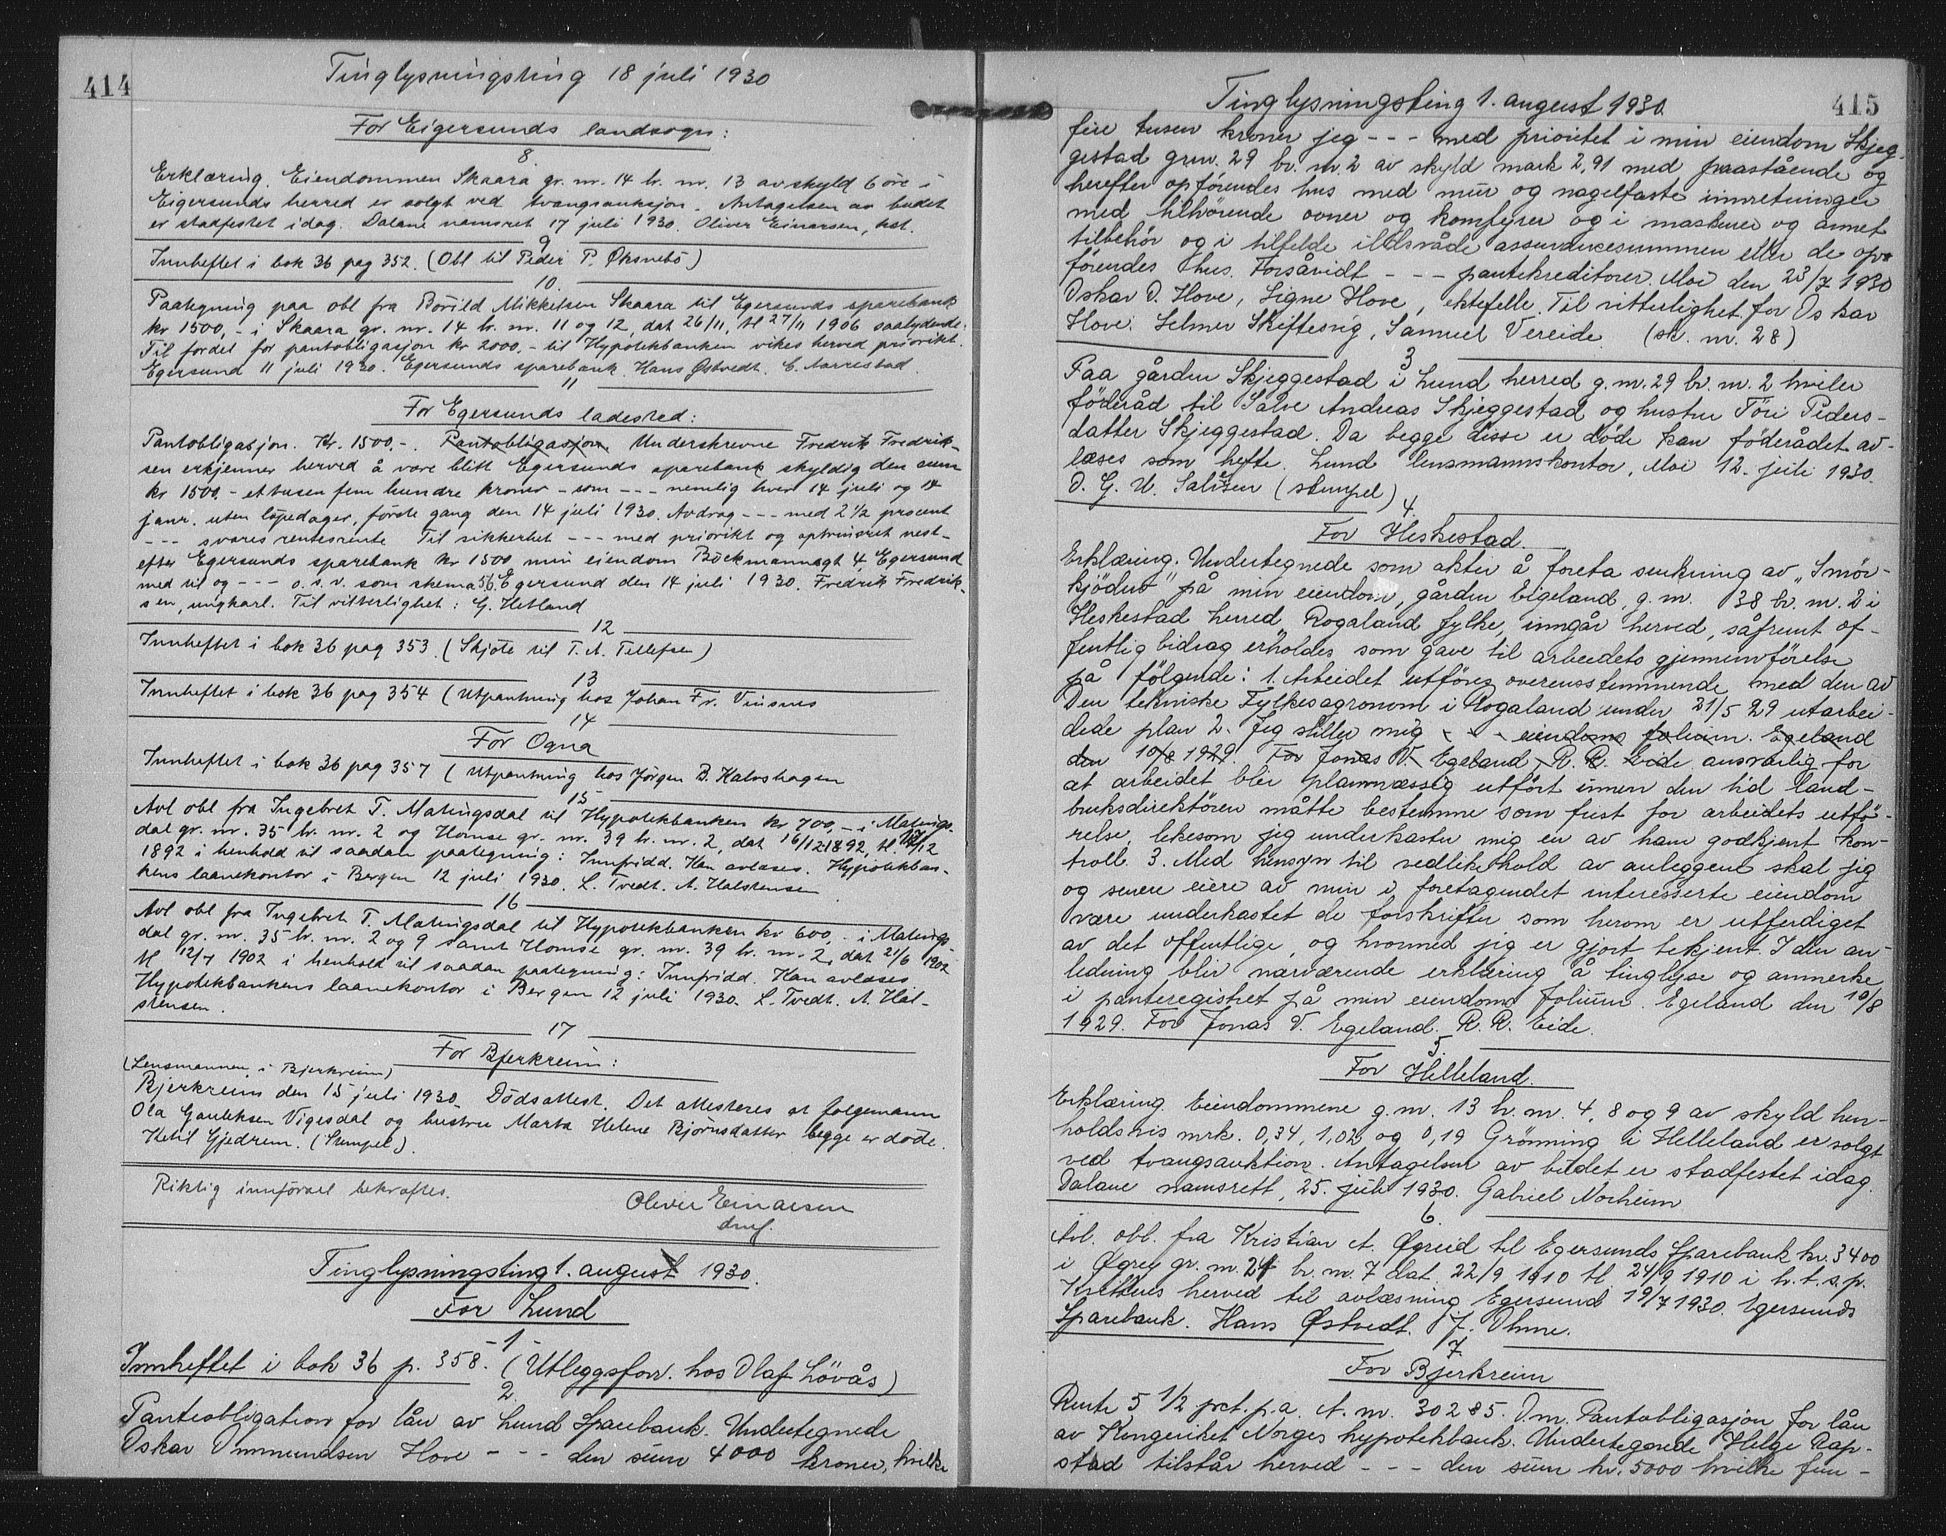 414
Tinglysningsting 18 juli 1930
For Eigersunds landsogn:
8.
Erklæring. Eiendommen Skaara gr. nr. 14 br. nr. 13 av skyld 6 øre i
Eigersunds herred er solgt ved tvangsauksjon. Antagelsen av budet
er stadfestet idag. Dalane namsret 17 juli 1930. Oliver Einarsen, kst.
9
Innheftet i bok 36 pag 352. (Obl til Peder P. Øksnebø)
10.
Paategning paa obl fra Børild Mikkelsen Skaara til Egersunds sparebank
kr 1500,- i Skaara gr. nr. 14 br. nr. 11 og 12, dat 26/11, tl 27/11 1906 saalydende:
Til fordel for pantobligasjon kr 2000,- til Hypotekbanken vikes herved priorikt.
Egersund 11 juli 1930. Egersunds sparebank. Hans Østvedt. C. Aarrestad.
11
For Egersunds ladested:
Pantobligasjon. Kr. 1500,-. Pantobligasjon Underskrevne Fredrik Fredrik-
sen erkjenner herved å være blitt Egersunds sparebank skyldig den sum
kr 1500,- ettusen fem hundre kroner - som --- nemlig hver 14 juli og 14
janr. uten løpedager, første gang den 14 juli 1930. Avdrag --- med 2 1/2 procent
--- svares rentesrente Til sikkerhet --- med priorikt og optrinsret nest-
efter Egersunds sparebank kr 1500 min eiendom Böckmannsgt 4, Egersund
med til og --- o.s.v. som skema 56. Egersund den 14 juli 1930. Fredrik Fredrik-
sen, ungkarl. Til vitterlighet: G. Hetland
12
Innheftet i bok 36 pag 353. (Skjøte til T. A. Tellefsen)
13
Innheftet i bok 36 pag 354 (Utpantning hos Johan Fr. Vinsnes
14
For Ogna
Innheftet i bok 36 pag 357 (Utpantning hos Jørgen B. Kalvshagen
15
Avl obl fra Ingebret T. Matingsdal til Hypotekbanken kr 700,- i Matings-
dal gr. nr. 35 br. nr. 2 og Homse gr. nr. 39 br. nr. 2, dat 16/12 1892, tl 17/12
1892 i henhold til saadan paategning: Innfridd. Kan avlæses. Hypotekban-
kens laanekontor i Bergen 12 juli 1930. L. Tvedt. A. Halstensen
16
Avl obl fra Ingebret T. Matingsdal til Hypotekbanken kr 600,- i Matings-
dal gr. nr. 35 br. nr. 2 og 9 samt Homse gr. nr. 39 br. nr. 2, dat 21/6 1902
tl 12/7 1902 i henhold til saadan paategning: Innfridd. Kan avlæses
Hypotekbankens laanekontor i Bergen 12 juli 1930. L. Tvedt. A. Hal-
stensen.
17
For Bjerkreim:
(Lensmannen i Bjerkreim)
Bjerkreim den 15 juli 1930. Dödsattest. Det attesteres at folgemann
Ola Gauteksen Vigesdal og hustru Marta Helene Bjørnsdatter begge er døde.
Ketil Gjedrem. (Stempel).
Riktig innförsel bekræftes.
Oliver Einarsen
dmf.
Tinglysningsting 1. august 1930.
For Lund
-1-
Innheftet i bok 36 p. 358. (Utleggsforr. hos Olaf Lövås)
2.
Panteobligation for lån av Lund Sparebank. Undertegnede
Oskar Ommundsen Hove --- den sum 4000 kroner, hvilke
415
Tinglysningsting 1. august 1930.
fire tusen kroner jeg --- med prioritet i min eiendom Skjeg-
gestad grnr. 29 br. nr. 2 av skyld mark 2,91 med paastående og
herefter opförendes hus med mur og nagelfaste innretninger
med tilhörende ovner og komfyrer og i maskiner og annet
tilbehör og i tilfelde ildsvåde assurancesummen eller de op-
förendes hus. Forsåvidt --- pantekreditorer. Moi den 23/7 1930
Oskar O. Hove, Signe Hove, ektefelle. Til vitterlighet for Oskar
Hove: Selmer Skiftesvig, Samuel Vereide. (sk. nr. 28)
3
Paa gården Skjeggestad i Lund herred g. nr. 29 br. nr. 2 hviler
föderåd til Salve Andreas Skjeggestad og hustru Töri Peders-
datter Skjeggestad. Da begge disse er döde kan föderådet av-
læses som hefte. Lund lensmannskontor, Moi 12. juli 1930.
O. G. U. Salvesen (stempel)
4.
For Heskestad.
Erklæring. Undertegnede som akter å foreta senkning av "Smör-
kjödnet" på min eiendom, gården Eigeland, g. nr. 38 br. nr. 2 i
Heskestad herred, Rogaland fylke, inngår herved, såfremt of-
fentlig bidrag erholdes som gave til arbeidets gjennemförelse
på fölgende: 1. Arbeidet utföres overensstemmende med den av
Den tekniske Fylkesagronom i Rogaland under 21/5 29 utarbei-
dede plan 2. Jeg stiller mig --- eiendoms folium. Egeland
den 10/8 1929. For Jonas V. Egeland R. R. Eide ansvarlig for
at arbeidet blir planmæssig utfört innen den tid land-
bruksdirektören måtte bestemme som frist for arbeidets utfö-
relse, likesom jeg underkaster mig en av ham godkjent kon-
troll. 3. Med hensyn til vedlikehold av anleggene skal jeg
og senere eiere av min i foretagendet interesserte eiendom
være underkastet de forskrifter som herom er utferdiget
av det offentlige, og hvormed jeg er gjort bekjent. I den an-
ledning blir nærværende erklæring å tinglyse og anmerke
i panteregistret på min eiendoms folium. Egeland den 10/8
1929. For Jonas V. Egeland. R. R. Eide.
5.
For Helleland.
Erklæring Eiendommene g. nr. 13 br. nr. 4, 8 og 9 av skyld hen-
holdsvis mrk. 0,34, 1,02 og 0,19 Grönning i Helleland er solgt
ved tvangsauktion. Antagelsen av budet er stadfestet idag.
Dalane namsrett, 25. juli 1930. Gabriel Norheim
6.
Avl. obl. fra Kristian A. Øgreid til Egersunds Sparebank kr. 3400
i Øgrey gr. nr. 24 br. nr. 7 dat. 22/9 1910 tl. 24/9 1910 i h.t.s.p.
Kvitteres herved til avlæsning Egersund 19/7 1930. Egersunds
Sparebank. Hans Østvedt. J. Ohne.
7
For Bjerkreim
Rente 5 1/2 prct. p.a. A. nr. 30285. Om. Pantobligasjon for lån
av Kongeriket Norges hypotekbank. Undertegnede Helge Rap-
stad tilstår herved --- den sum kr. 5000 hvilke fem-